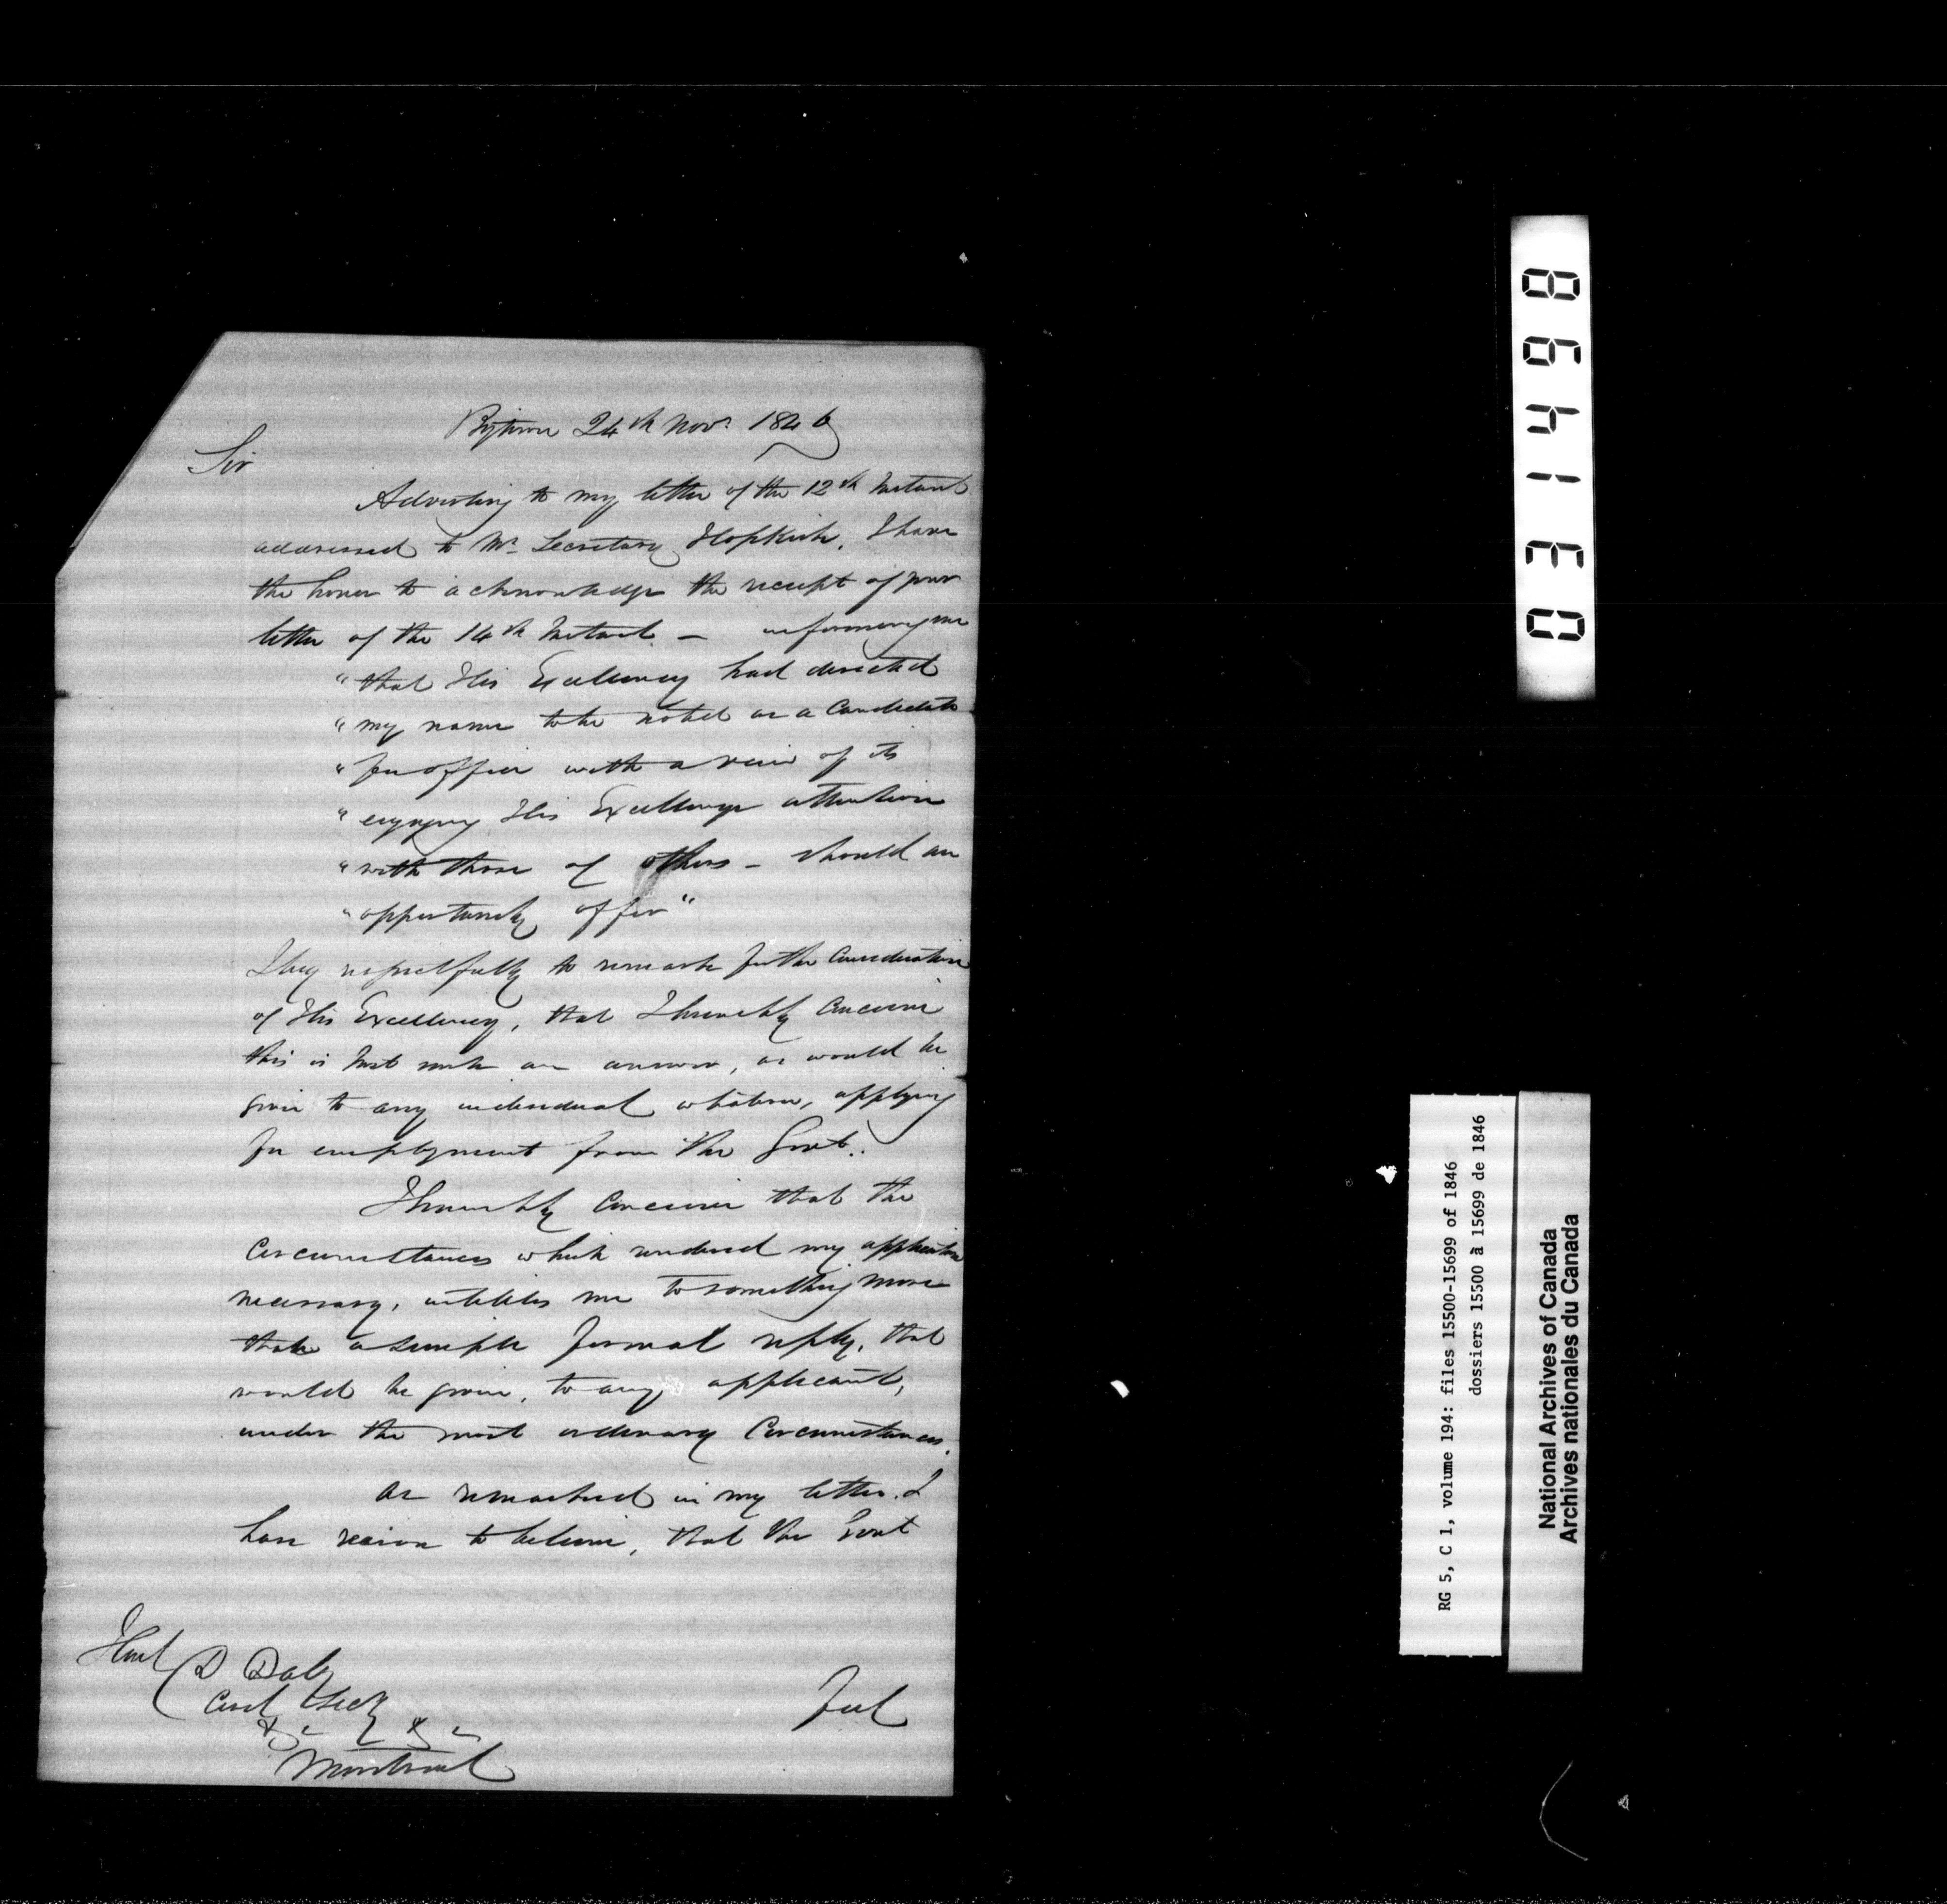 Bytown 24th Nov. 1846
Sir
Adverting to my letter of the 12th Instant
addressed to Mr. Secretary Hopkirk, I have
the honor to acknowledge the receipt of your
letter of the 14th Instant — informing me
"that His Excellency had directed
"my name to be noted as a Candidate
"for office with a view of its
"engaging His Excellencys attention
"with those of others — should an
"opportunity offer"
I beg respectfully to remark for the Consideration
of His Excellency, that I humbly Conceive
this is just such an answer, as would be
given to any individual whatever, applying
for employment from the Govt.
I humbly Conceive that the
Circumstances which rendered my application
necessary, entitles me to something more
than a simple formal reply, that
would be given, to any applicant,
under the most ordinary Circumstances.
As remarked in my letter. I
have reason to believe, that the Govt
Honl D Daly
Civil Secy
&c &c
Montreal
feel
864130
RG 5, C 1, volume 194: files 15500-15699 of 1846
dossiers 15500 à 15699 de 1846
National Archives of Canada
Archives nationales du Canada